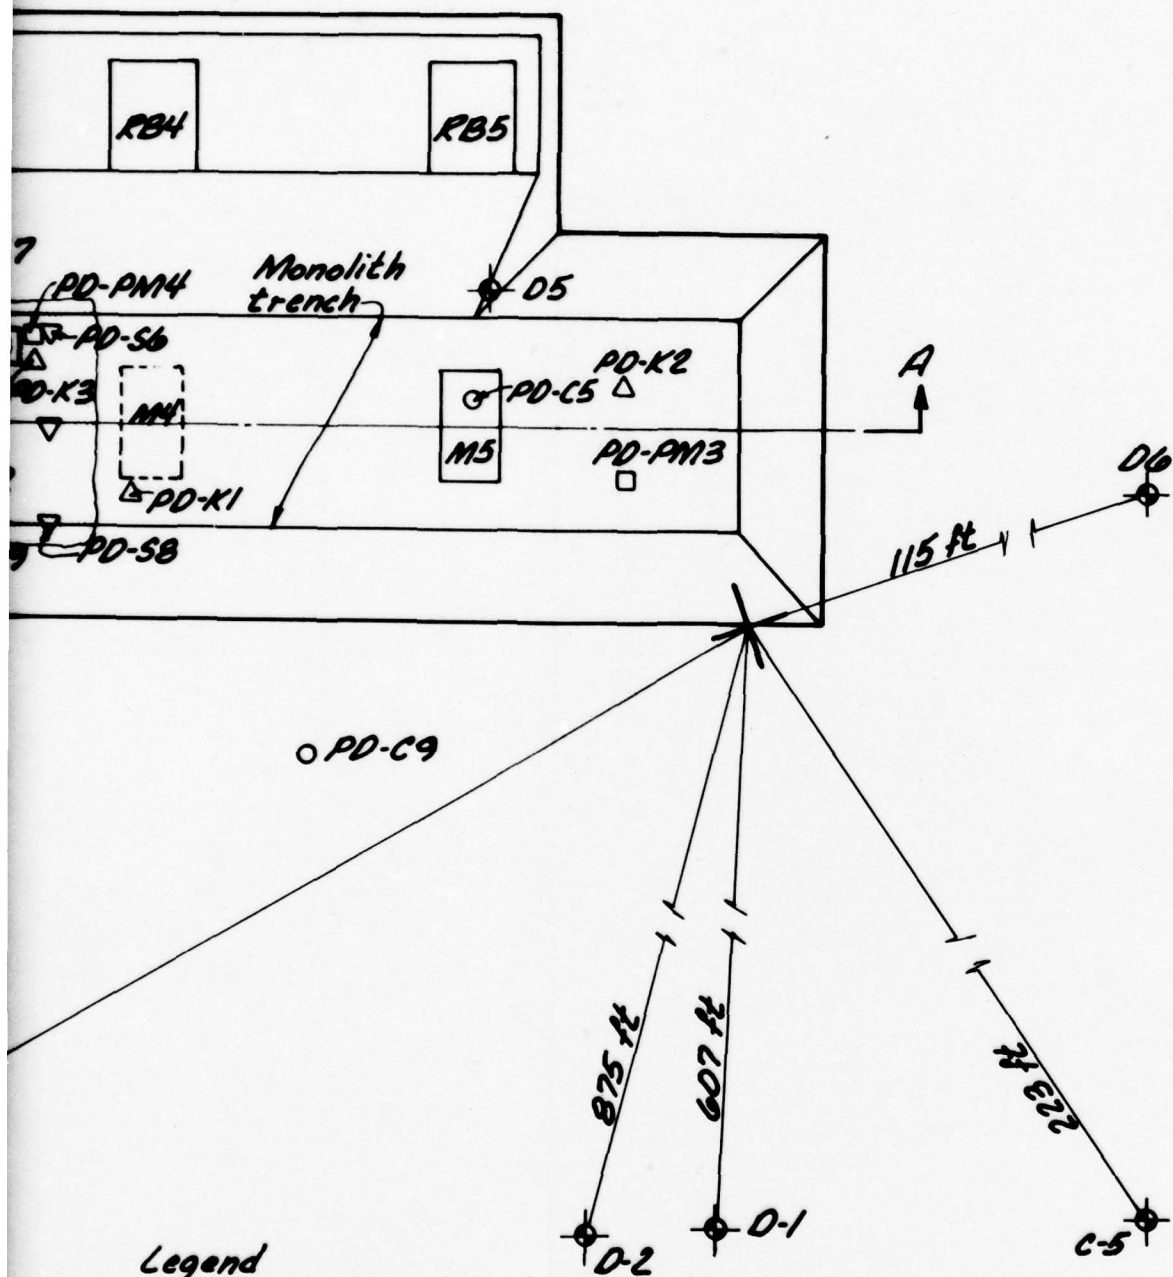 RB4
RB5
7
PD-PM4
Monolith
trench
D5
PD-S6
PD-K3
M4
PD-C5
PD-K2
A
M5
PD-PM3
D6
PD-K1
9
PD-S8
115 ft
PD-C9
875 ft
607 ft
223 ft
D-2
D-1
C-5
Legend